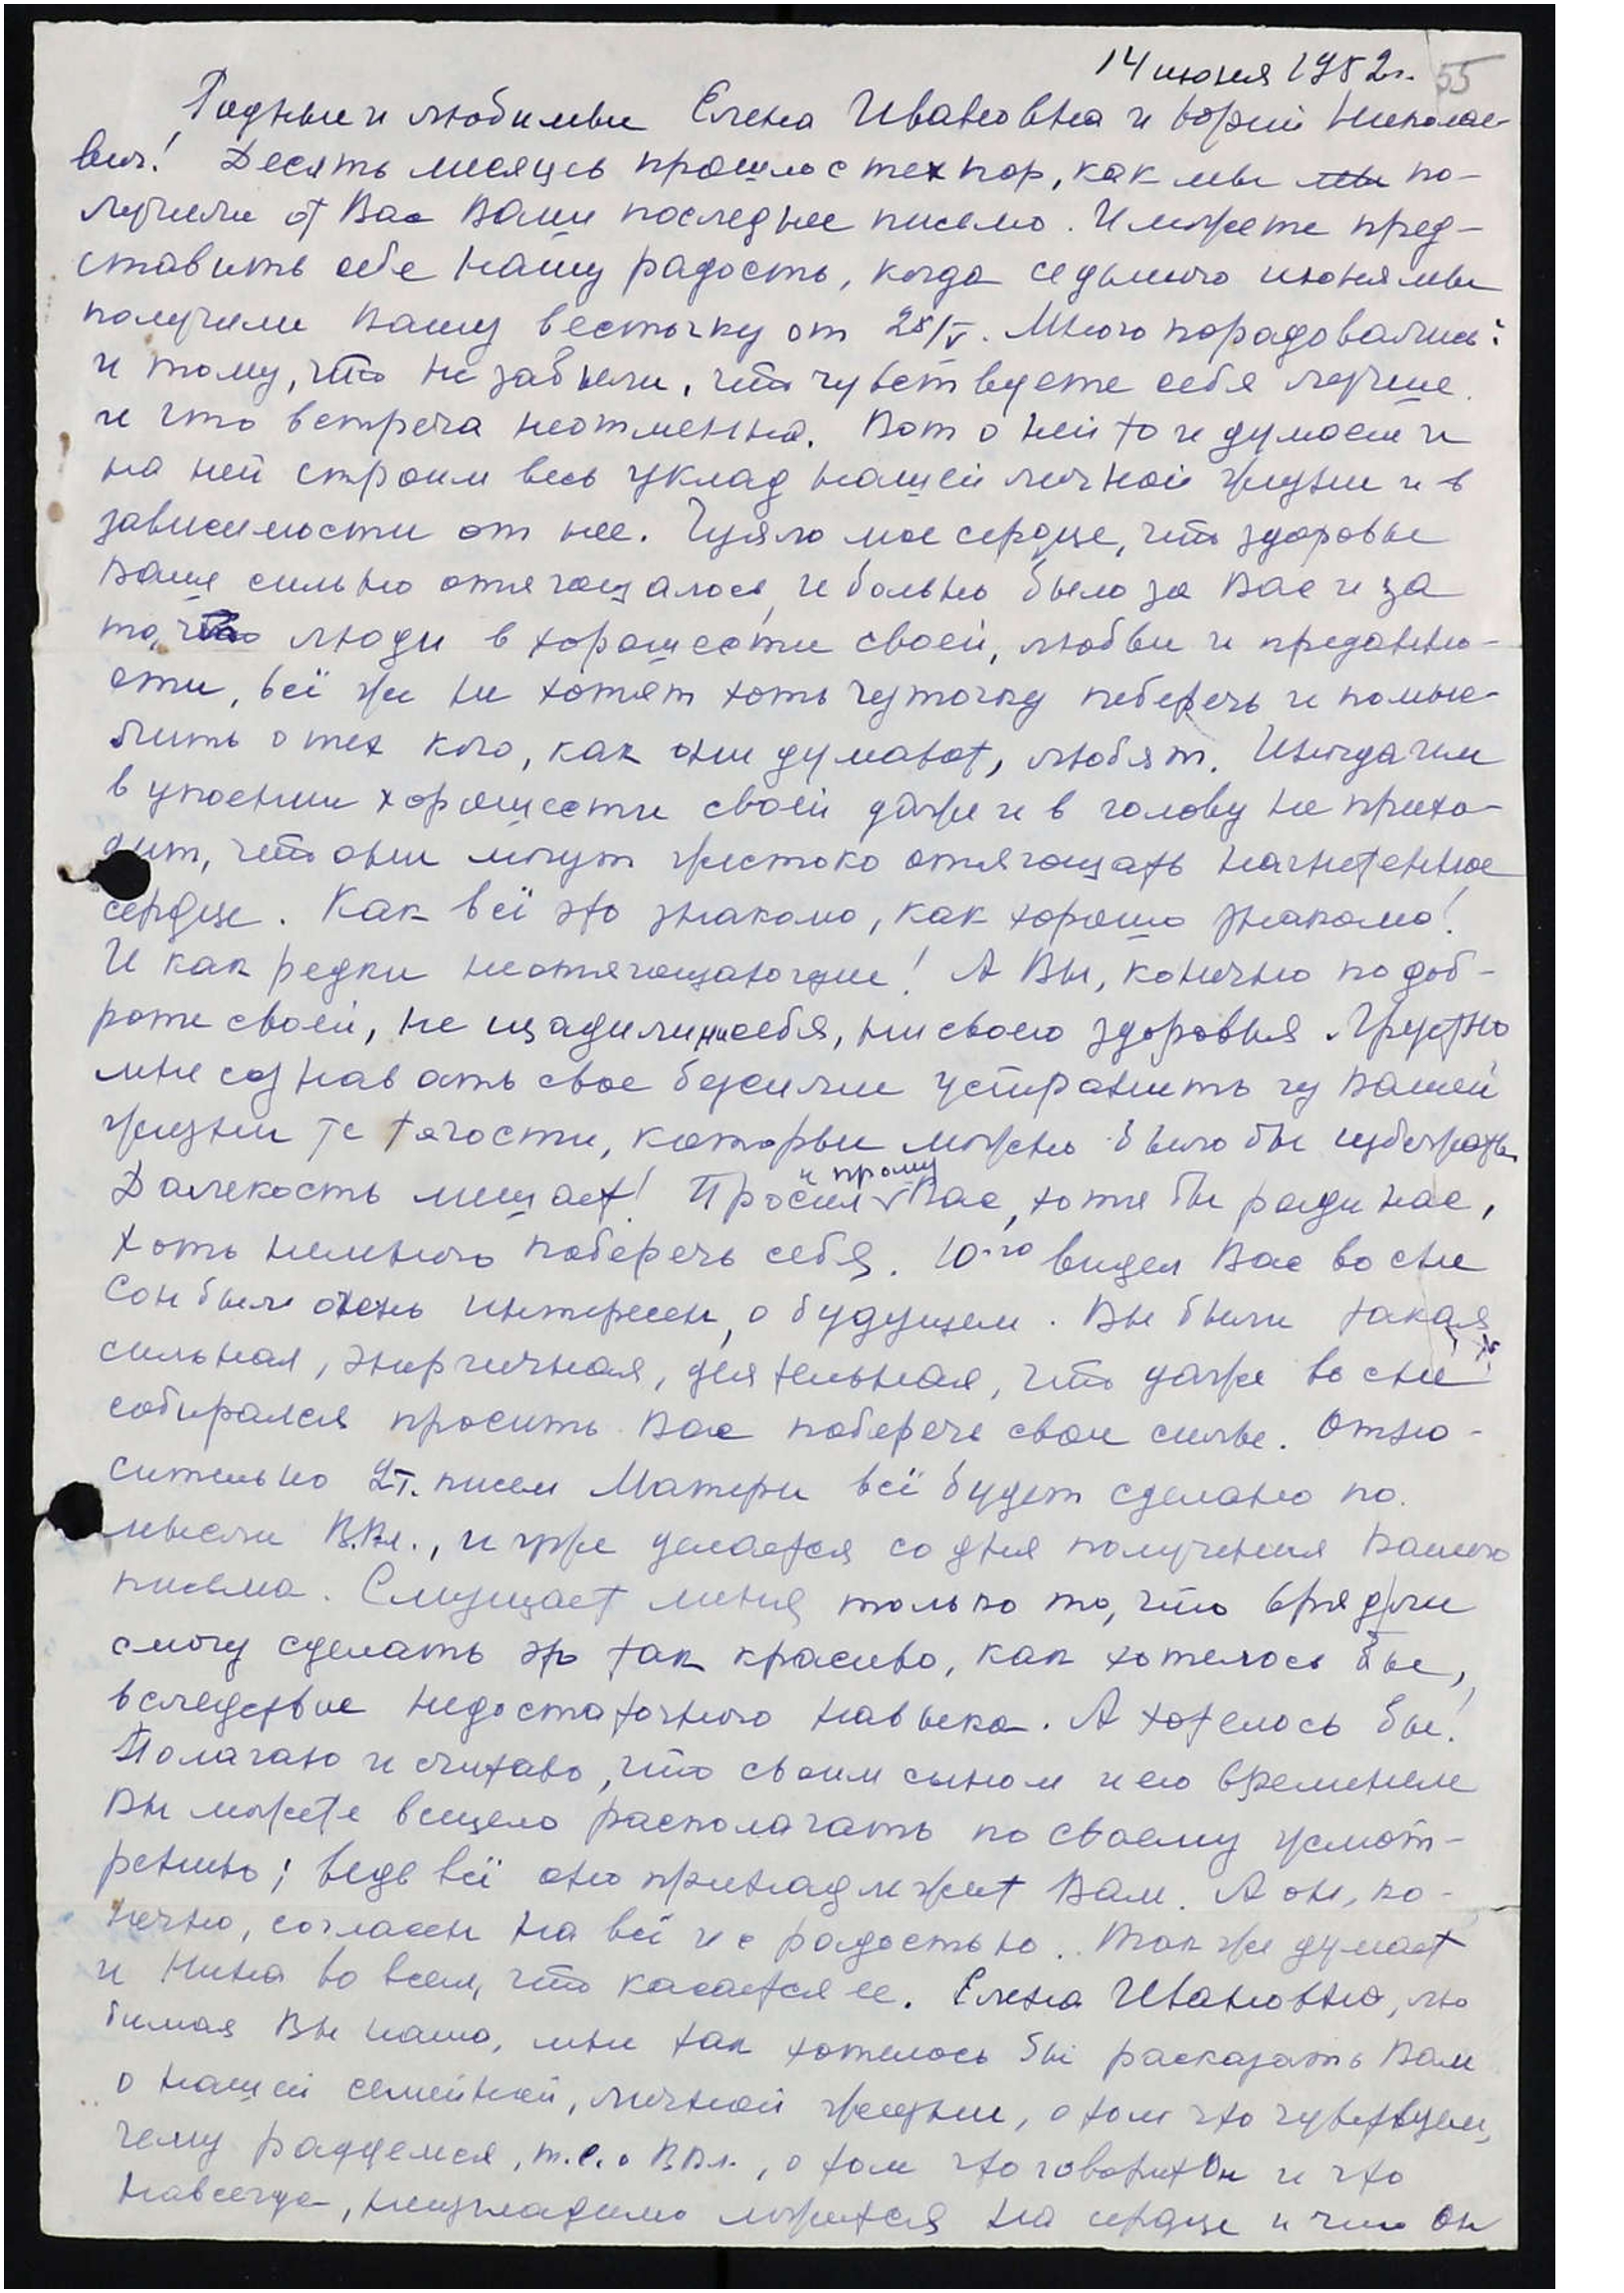 14 июня 1952 г. 55
Родные и любимые Елена Ивановна и Юрий Николае-
вич! Десять месяцев прошло с тех пор, как мы мы по-
лучили от Вас Ваше последнее письмо. И можете пред-
ставить себе нашу радость, когда седьмого июня мы
получили Вашу весточку от 28/V. Много порадовались:
и тому, что не забыли, что чувствуете себя лучше
и что встреча неотменна. Вот о ней то и думаем и
на ней строим весь уклад нашей личной жизни и в
зависимости от нее. Чуяло мое сердце, что здоровье
Ваше сильно отягощалось, и больно было за Вас и за
то, что люди в хорошести своей, любви и преданно-
сти, всё же не хотят хоть чуточку поберечь и помыс-
лить о тех кого, как они думают, любят. Иногда им
в упоении хорошести своей даже и в голову не прихо-
дит, что они могут жестоко отягощать нагнетенное
сердце. Как всё это знакомо, как хорошо знакомо!
И как редки неотягощающие! А Вы, конечно по доб-
роте своей, не щадили ни себя, ни своего здоровья. Грустно
мне сознавать свое бессилие устранить из Вашей
жизни те тягости, которые можно было бы избежать.
Далекость мешает! Просил и прошу Вас, хотя бы ради нас,
хоть немного поберечь себя. 10-го видел Вас во сне
Сон был очень интересен, о будущем. Вы были такая
сильная, энергичная, деятельная, что даже во сне
собирался просить Вас поберечь свои силы. Отно-
сительно 2т. писем Матери всё будет сделано по
мысли В.Вл., и уже делается со дня получения Вашего
письма. Смущает меня только то, что врядли
смогу сделать это так красиво, как хотелось бы,
вследствие недостаточного навыка. А хотелось бы!
Полагаю и считаю, что своим сыном и его временем
Вы можете всецело располагать по своему усмот-
рению; ведь всё оно принадлежит Вам. А он, ко-
нечно, согласен на всё и с радостью. Так же думает
и Нина во всем, что касается ее. Елена Ивановна, лю
бимая Вы наша, мне так хотелось бы расказать Вам
о нашей семейной, личной жизни, о том что чувствуем,
чему радуемся, т.е. о В.Вл., о том что говорит Он и что
навсегда, неизгладимо ложится на сердце и чем Он